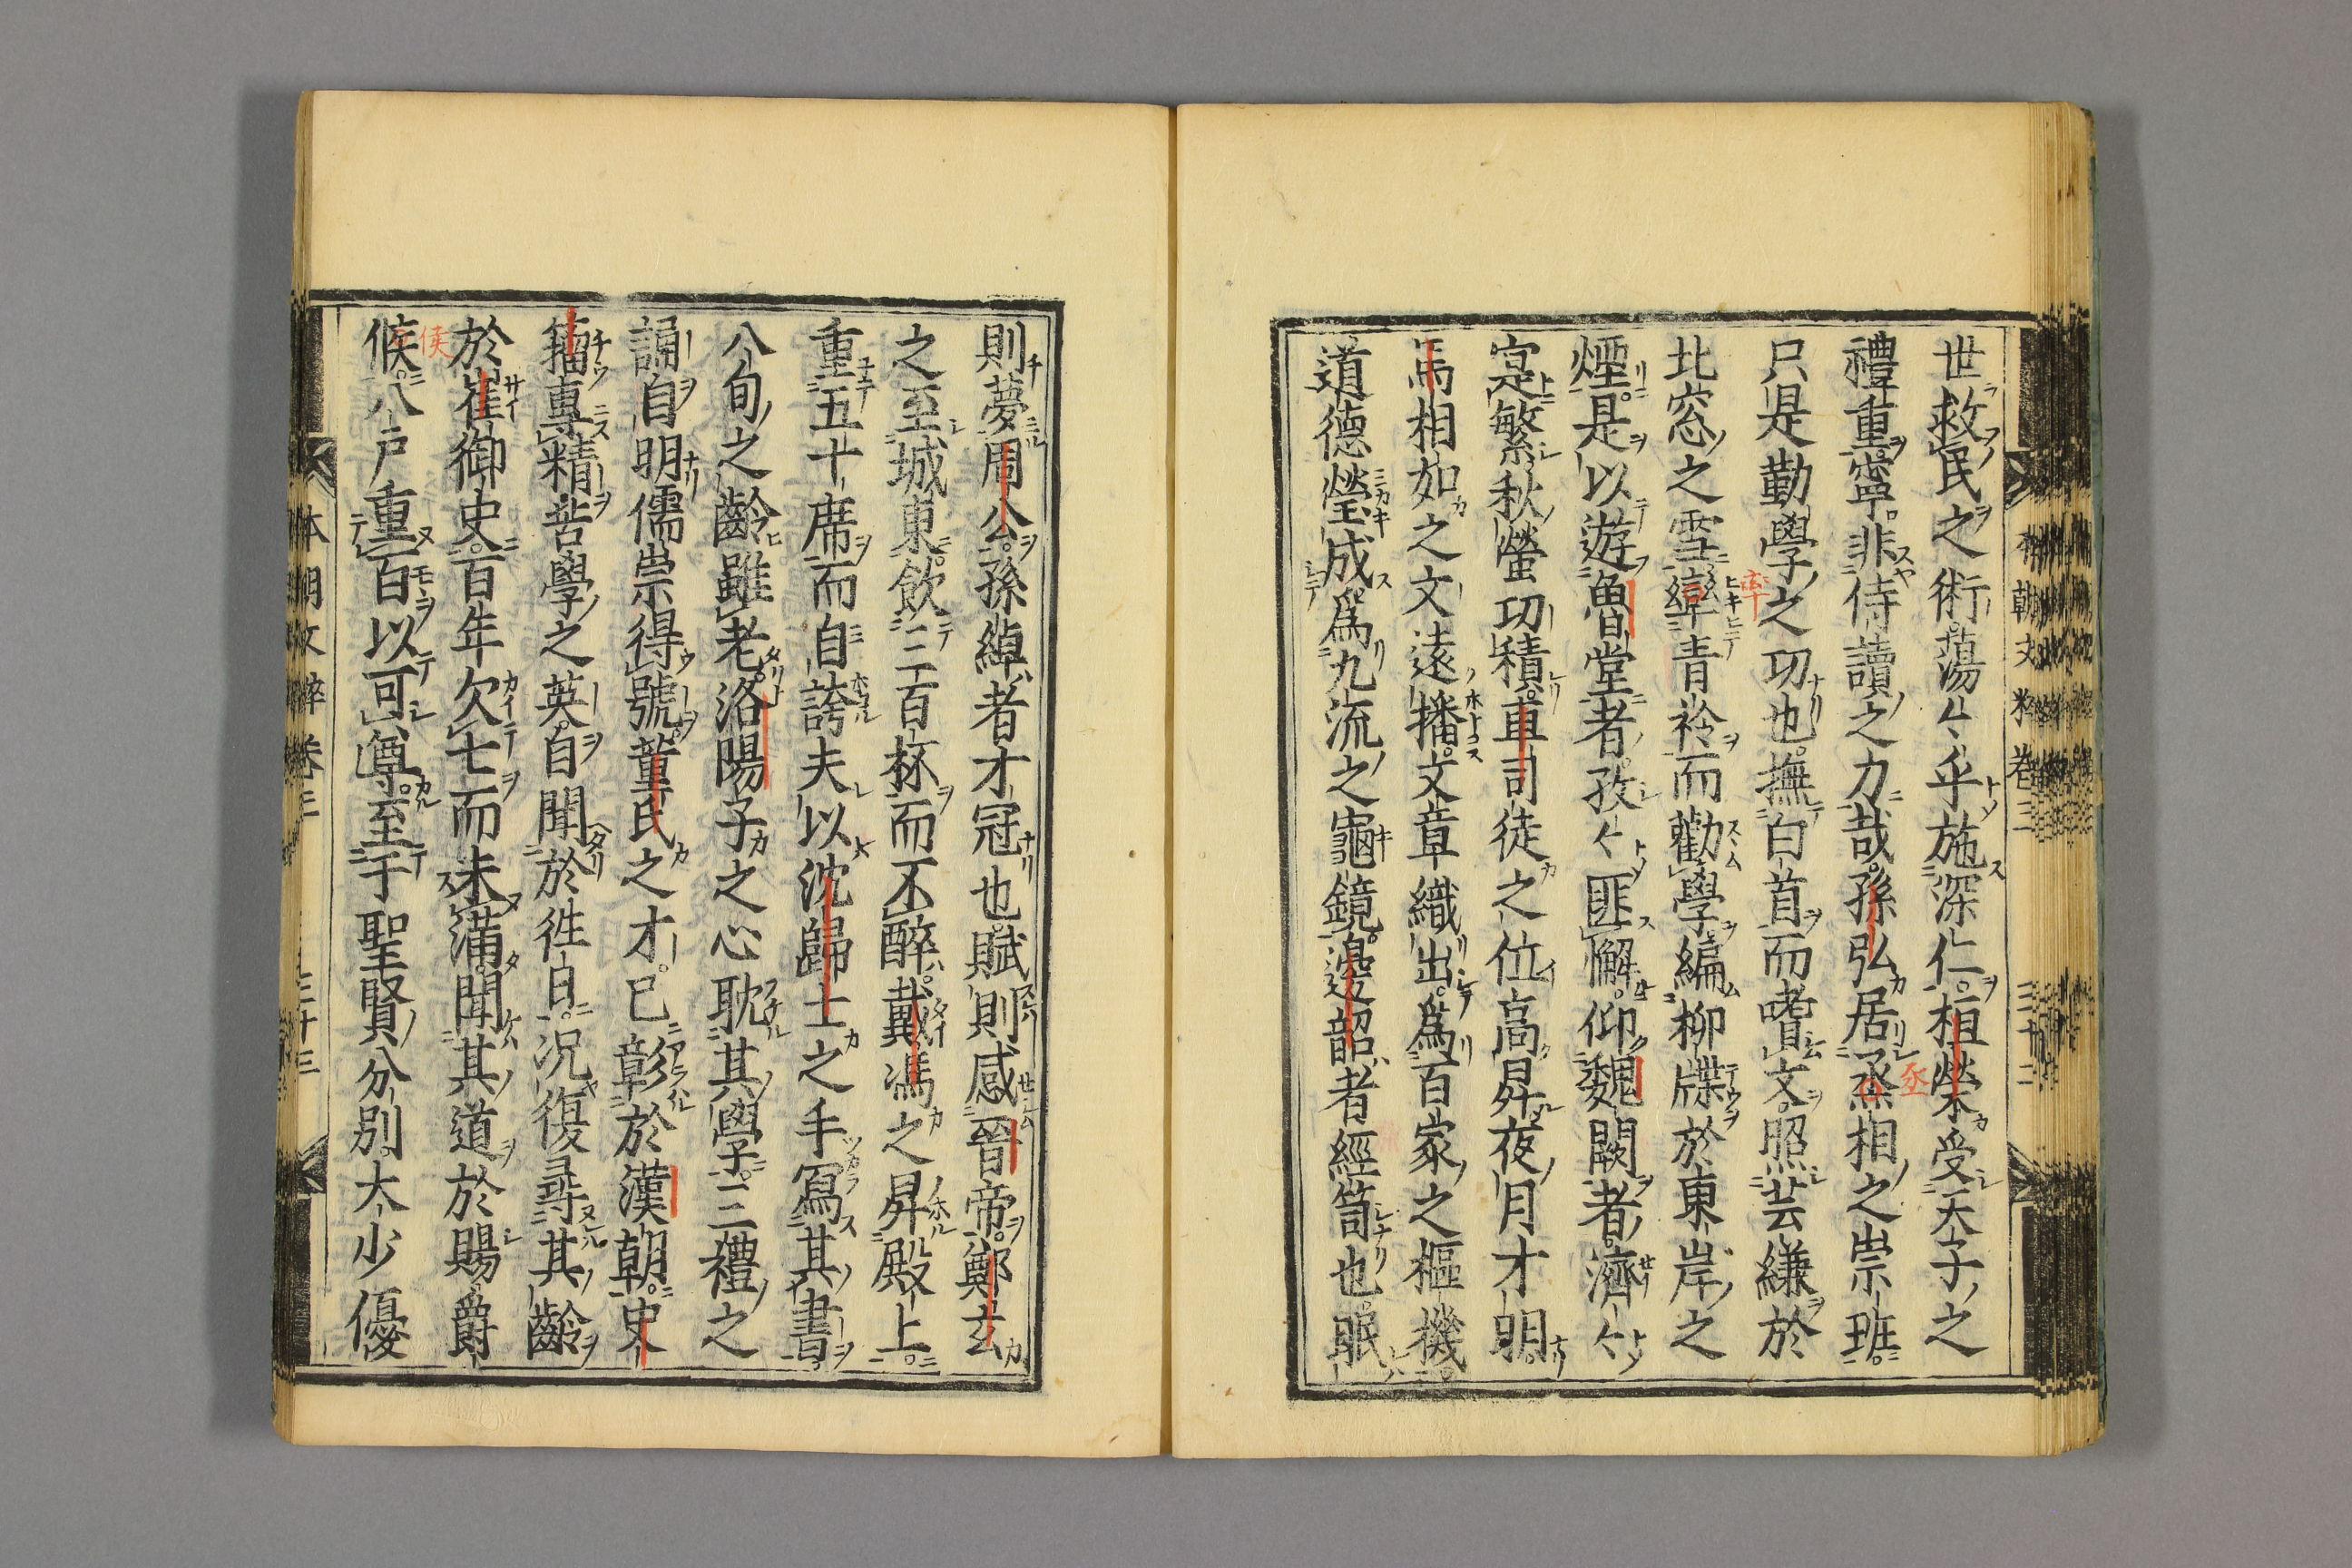 世救民之術蕩々乎施深仁桓榮受天子之
禮重寧非侍讀之力哉孫弘居烝相之崇班
只是勤學之功也撫白首而嗜文照芸縑於
北窓之雪牽青衿而勸學編柳牒於東岸之
煙是以遊魯堂者孜々匪懈仰魏闕者濟々
寔繁秋螢功積車司徒之位高昇夜月才明
馬相如之文遠播文章織出為百家之樞機
道德瑩成為九流之龜鏡邊韶者經笥也眠
則夢周公孫綽者才冠也賦則感晉帝鄭玄
之至城東飲三百杯而不醉戴馮之昇殿上
重五十席而自誇夫以沈歸士之手寫其書
八旬之齡雖老洛陽子之心耽其學三禮之
誦自明儒崇得號董氏之才已彰於漢朝史
籀專精苦學之英自聞於徃日況復尋其齡
於崔御史百年欠七而未滿聞其道於賜爵
候八戶重百以可尊至于聖賢分別太少優
本朝文粹卷三
三十三